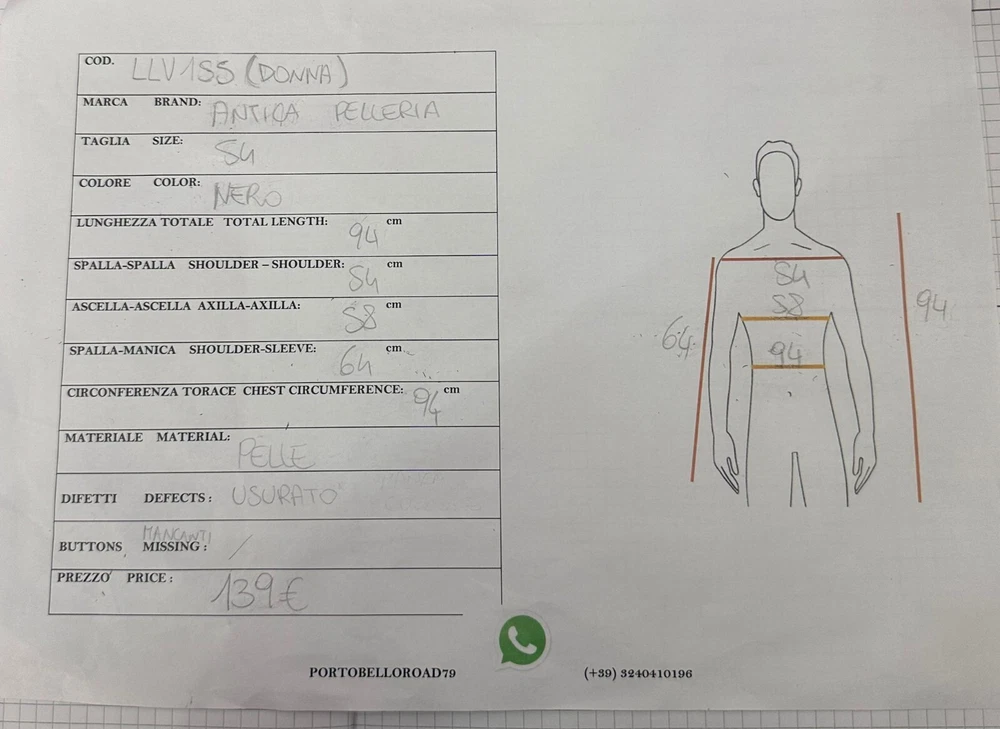 COD. LLV155 (DONNA)
MARCA BRAND: ANTICA PELLERIA
TAGLIA SIZE: 54
COLORE COLOR: NERO
LUNGHEZZA TOTALE TOTAL LENGTH: 94 cm
SPALLA-SPALLA SHOULDER – SHOULDER: 54 cm
ASCELLA-ASCELLA AXILLA-AXILLA: 58 cm
SPALLA-MANICA SHOULDER-SLEEVE: 64 cm
CIRCONFERENZA TORACE CHEST CIRCUMFERENCE: 94 cm
MATERIALE MATERIAL: PELLE
DIFETTI DEFECTS: USURATO
MANCANTI
BUTTONS MISSING: /
PREZZO PRICE: 139€
54
58
94
64
94
PORTOBELLOROAD79 (+39) 3240410196